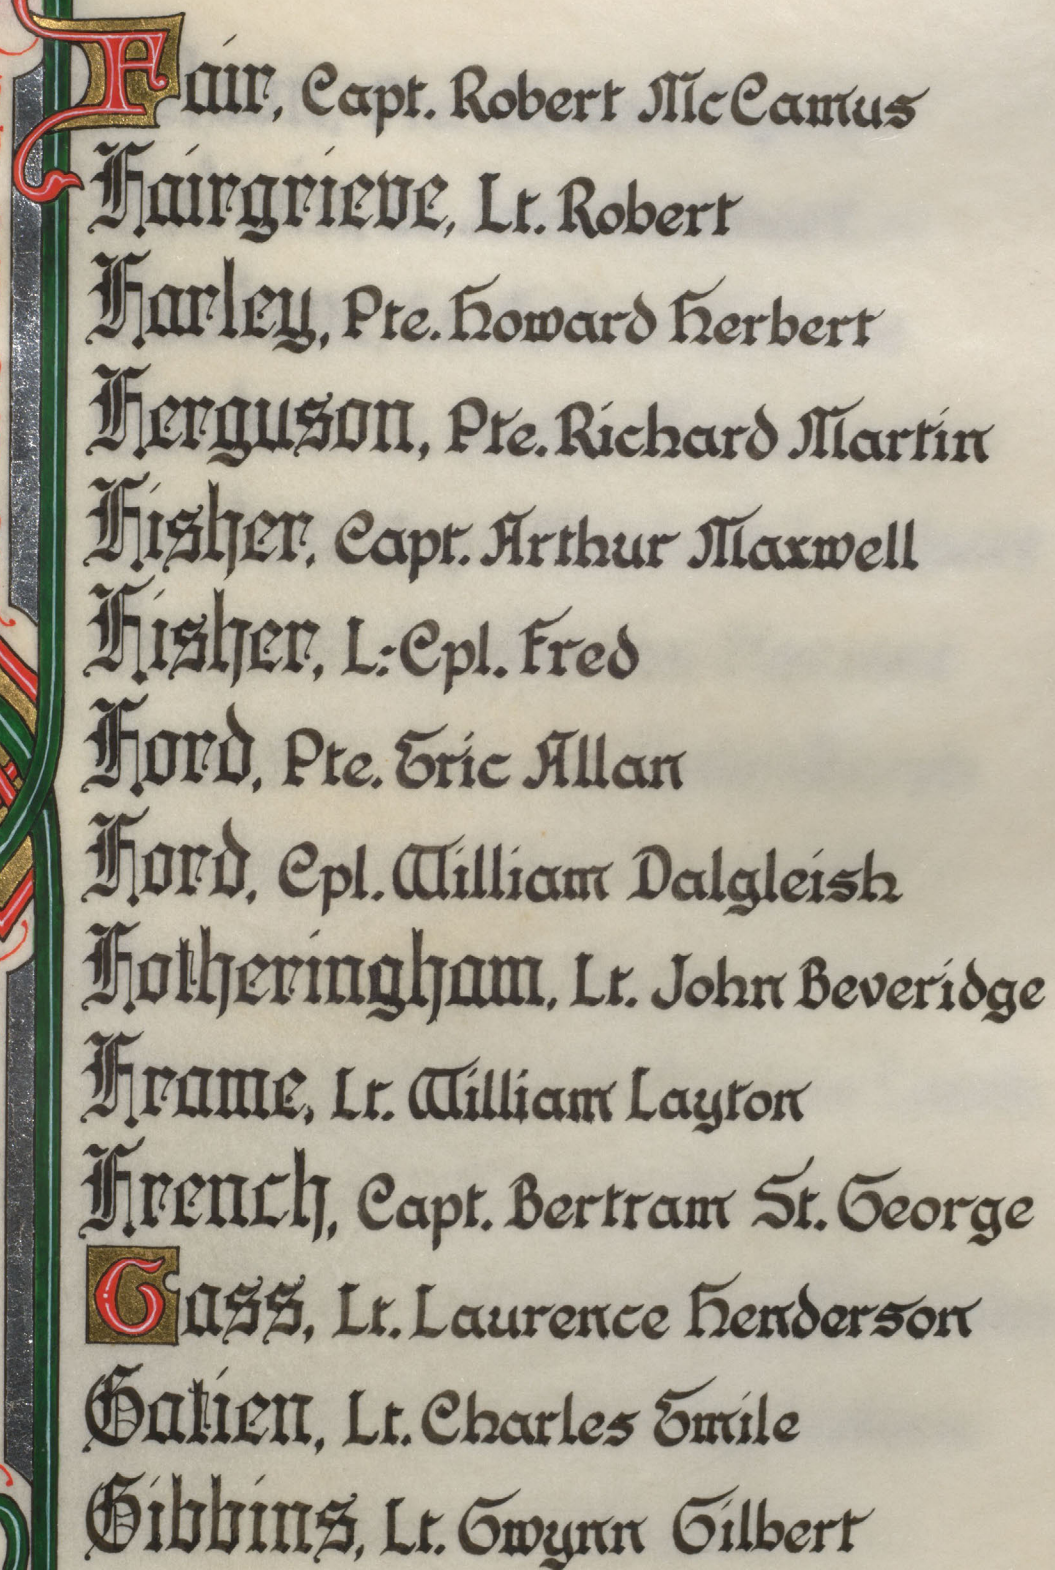 Fair, Capt. Robert McCamus
Fairgrieve, Lt. Robert
Farley, Pte. Howard Herbert
Ferguson, Pte. Richard Martin
Fisher, Capt. Arthur Maxwell
Fisher, L:Cpl. Fred
Ford, Pte. Eric Allan
Ford, Cpl. William Dalgleish
Fotheringham, Lt. John Beveridge
Frame, Lt. William Layton
French, Capt. Bertram St. George
Gass, Lt. Laurence Henderson
Gatien, Lt. Charles Emile
Gibbins, Lt. Gwynn Gilbert